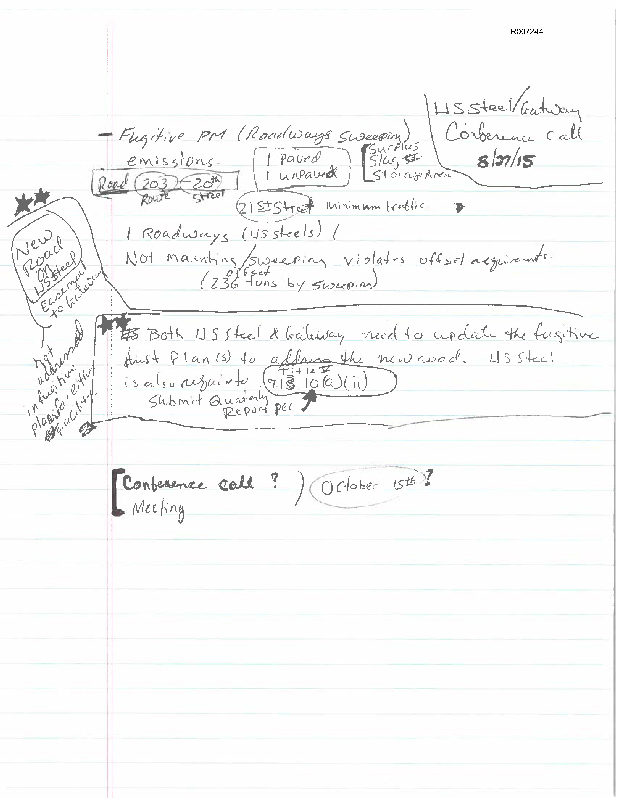 R007244
US Steel/Gateway
Conference call
8/27/15
- Fugitive PM (Roadways Sweeping)
emissions.
1 Paved
1 unpaved
Surplus
Slag
Storage Area
Road 203 - 20th
Route Street
21st Street minimum traffic
1 Roadways (US Steels)
Not maintaing/sweeping violates offset requirements.
offset
(236 tons by sweeping)
New
Road
on
US Steel
Easement
to Gateway
not
addressed
in fugitive
plan for either
facilities
Both US Steel & Gateway need to update the fugitive
dust Plan(s) to address the new road. US Steel
is also require to
Title V
10(a)(ii)
Submit Quarterly
Report per
Conference call ?
Meeting
October 15th ?